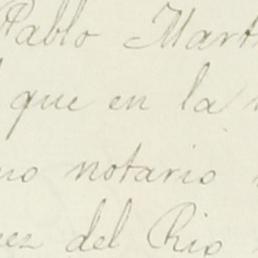 Pablo Mart
que en la
no notario
ez del Rio